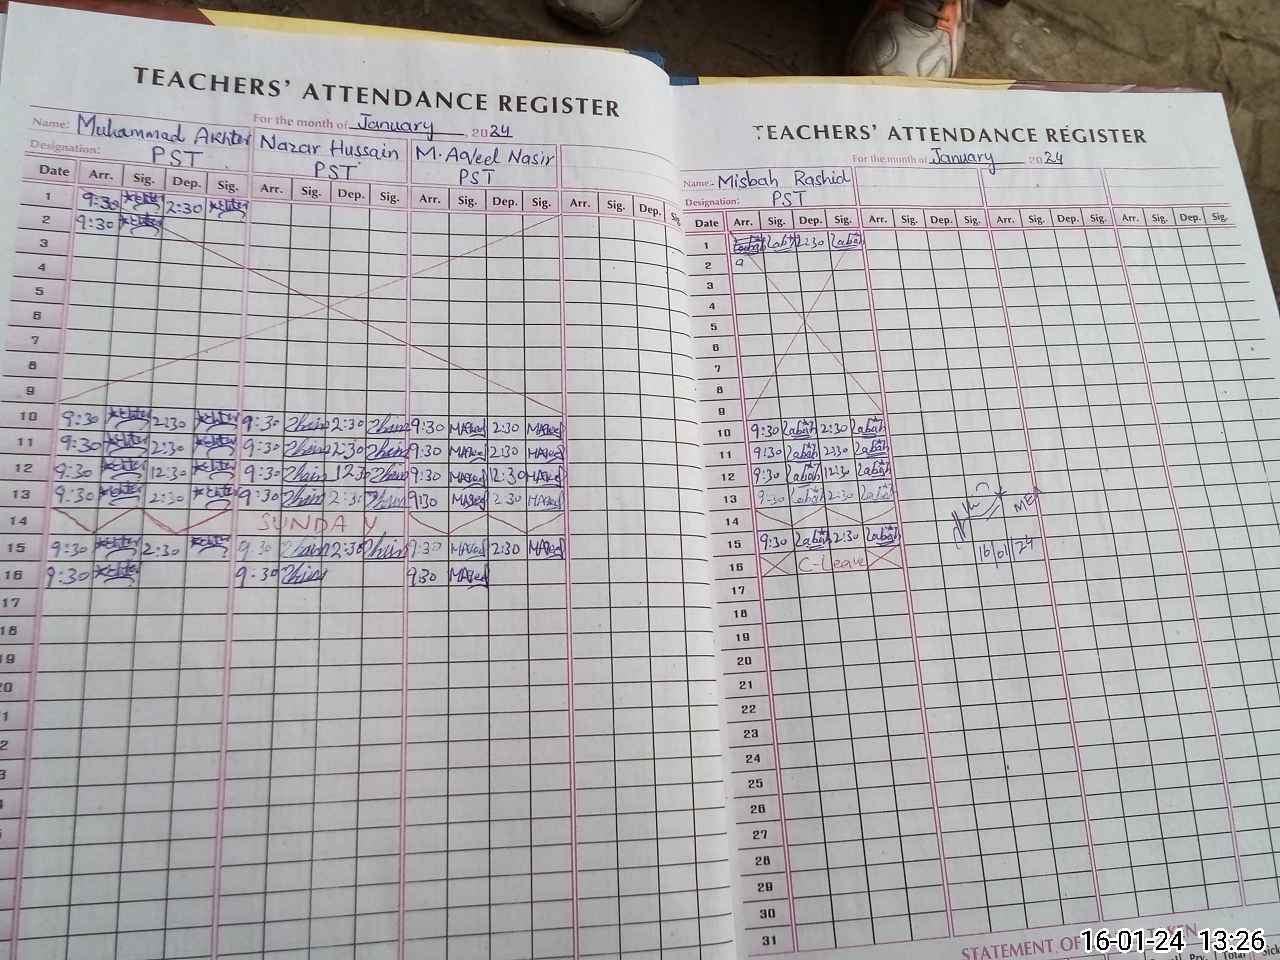 TEACHERS' ATTENDANCE REGISTER
For the month of January, 2024
Name: Muhammad Akhter Nazar Hussain M. Aqeel Nasir
Designation: PST PST PST
Date Arr. Sig. Dep. Sig. Arr. Sig. Dep. Sig. Arr. Sig. Dep. Sig. Arr. Sig. Dep. Sig.
1 9:30 2:30
2 9:30
3
4
5
6
7
8
9
10 9:30 2:30 9:30 2:30 9:30 2:30
11 9:30 2:30 9:30 2:30 9:30 2:30
12 9:30 12:30 9:30 12:30 9:30 12:30
13 9:30 2:30 9:30 2:30 9:30 2:30
14 SUNDAY
15 9:30 2:30 9:30 2:30 9:30 2:30
16 9:30 9:30 9:30
17
18
19
20
TEACHERS' ATTENDANCE REGISTER
For the month of January 2024
Name:- Misbah Rashid
Designation: PST
Date Arr. Sig. Dep. Sig. Arr. Sig. Dep. Sig. Arr. Sig. Dep. Sig. Arr. Sig. Dep. Sig.
1 2:30
2 9
3
4
5
6
7
8
9
10 9:30 2:30
11 9:30 2:30
12 9:30 12:30
13 9:30 2:30
14
15 9:30 2:30
16 C-Leave
16/01/24
17
18
19
20
21
22
23
24
25
26
27
28
29
30
31
STATEMENT OF
16-01-24 13:26